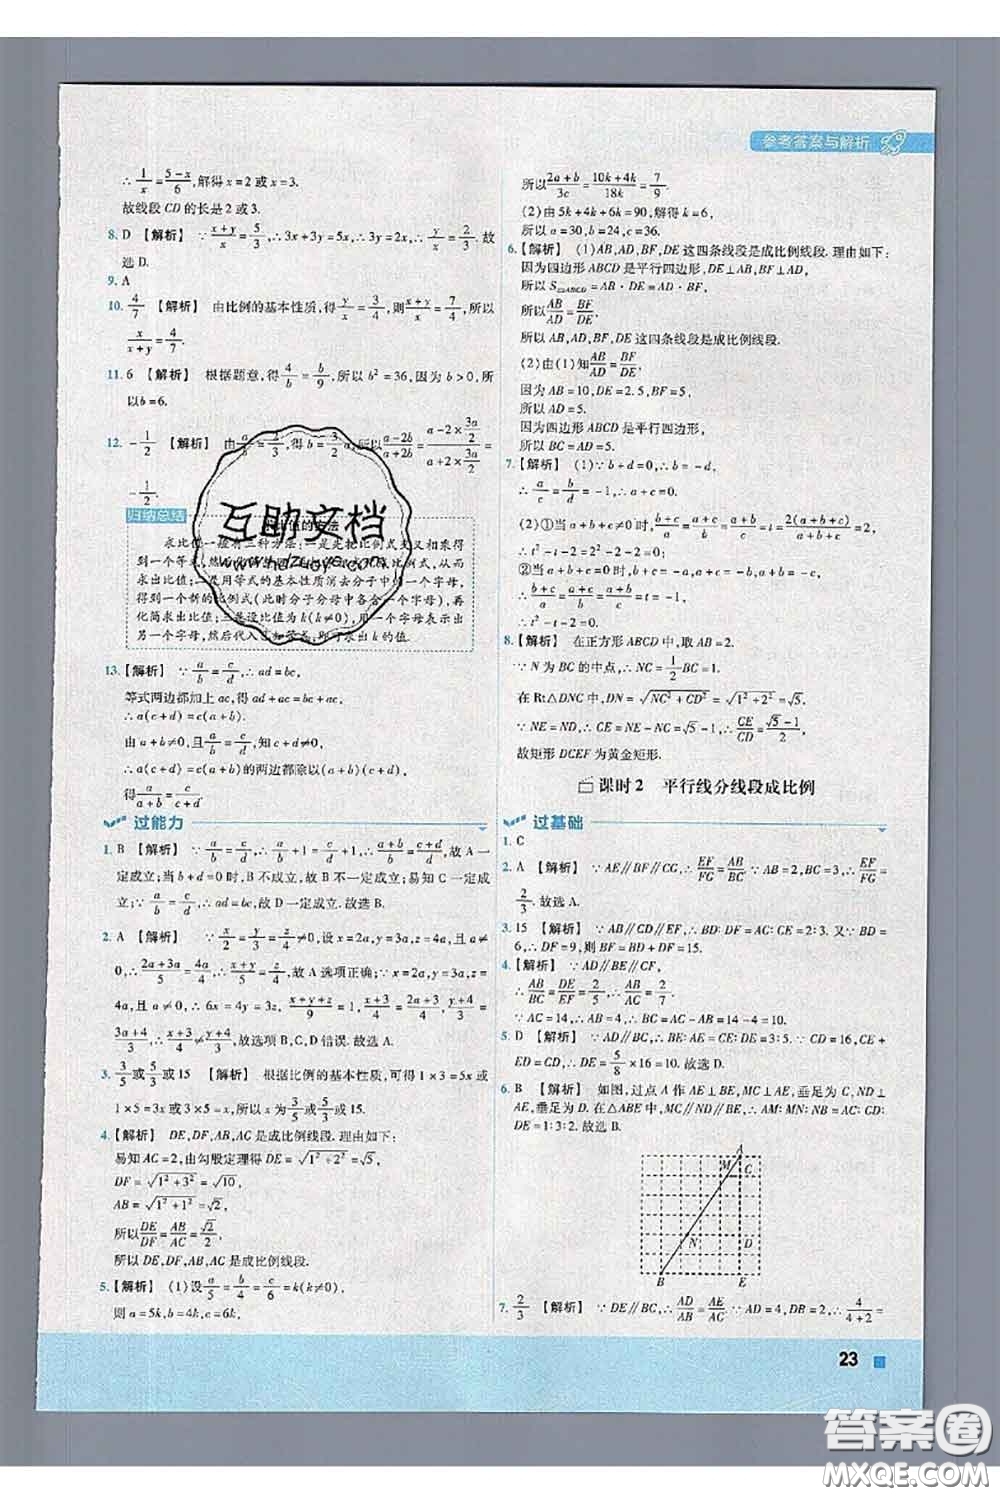 参考答案与解析
∴1/x=(5-x)/6,解得 x=2 或 x=3.
故线段 CD 的长是 2 或 3.
8. D 【解析】 ∵(x+y)/x=5/3,∴3x+3y=5x,∴3y=2x,∴y/x=2/3.故
选 D.
9. A
10. 4/7 【解析】 由比例的基本性质,得y/x=3/4,则(x+y)/x=7/4,所以
x/(x+y)=4/7.
11. 6 【解析】 根据题意,得4/b=b/9,所以 b²=36,因为 b>0,所
以 b=6.
12. -1/2 【解析】 由a/b=2/3,得 b=3/2 a,所以(a-2b)/(a+2b)=(a-2×3a/2)/(a+2×3a/2)=
-1/2.
归纳总结
求比值的方法
求比值一般有三种方法:一是先把比例式交叉相乘得
求出比值;二是用等式的基本性质消去分子中的一个字母,
得到一个新的比例式(此时分子分母中各含一个字母),再
化简求出比值;三是设比值为 k(k≠0),用一个字母表示出
另一个字母,然后代入求出 k 的值.
13.【解析】 ∵a/b=c/d,∴ad=bc,
等式两边都加上 ac,得 ad+ac=bc+ac,
∴a(c+d)=c(a+b).
由 a+b≠0,且a/b=c/d,知 c+d≠0,
∴a(c+d)=c(a+b)的两边都除以(a+b)(c+d),
得a/(a+b)=c/(c+d).
过能力
1. B 【解析】 ∵a/b=c/d,∴a/b+1=c/d+1,∴(a+b)/b=(c+d)/d,故 A 一
定成立;当 b+d=0 时,B 不成立,故 B 不一定成立;易知 C 一定成
立;∵a/b=c/d,∴ad=bc,故 D 一定成立.故选 B.
2. A 【解析】 ∵x/2=y/3=z/4≠0,设 x=2a,y=3a,z=4a,且 a≠
0,∴(2a+3a)/5=4a/4,∴(x+y)/5=z/4,故 A 选项正确;∵x=2a,y=3a,z=
4a,且 a≠0,∴6x=4y=3z,(x+y+z)/9=(x+3)/4=(2a+3)/4,(y+4)/3=
(3a+4)/3,∴(x+3)/4≠(y+4)/3,故选项 B,C,D 错误.故选 A.
3. 3/5或5/3或 15 【解析】 根据比例的基本性质,可得 1×3=5x 或
1×5=3x 或 3×5=x,所以 x 为3/5或5/3或 15.
4.【解析】 DE,DF,AB,AC 是成比例线段.理由如下:
易知 AC=2,由勾股定理得 DE=√(1²+2²)=√5,
DF=√(1²+3²)=√10,
AB=√(1²+1²)=√2,
所以DE/DF=AB/AC=√2/2,
所以 DE,DF,AB,AC 是成比例线段.
5.【解析】 (1)设a/5=b/4=c/6=k(k≠0),
则 a=5k,b=4k,c=6k,
所以(2a+b)/3c=(10k+4k)/18k=7/9.
(2)由 5k+4k+6k=90,解得 k=6,
所以 a=30,b=24,c=36.
6.【解析】 (1)AB,AD,BF,DE 这四条线段是成比例线段.理由如下:
因为四边形 ABCD 是平行四边形,DE⊥AB,BF⊥AD,
所以 S▱ABCD=AB·DE=AD·BF,
所以AB/AD=BF/DE.
所以 AB,AD,BF,DE 这四条线段是成比例线段.
(2)由(1)知AB/AD=BF/DE.
因为 AB=10,DE=2.5,BF=5,
所以 AD=5.
因为四边形 ABCD 为平行四边形,
所以 BC=AD=5.
7.【解析】 (1)∵b+d=0,∴b=-d,
∴a/b=c/d=a/-d=t=-1,∴a=-c,∴a+c=0.
(2)①当 a+b+c≠0 时,(b+c)/a=(a+c)/b=(a+b)/c=t=2(a+b+c)/(a+b+c)=2,
∴t²-t-2=2²-2-2=0;
②当 a+b+c=0 时,b+c=-a,a+c=-b,a+b=-c,
∴(b+c)/a=(a+c)/b=(a+b)/c=t=-1,
∴t²-t-2=0.
8.【解析】 在正方形 ABCD 中,取 AB=2.
∵N 为 BC 的中点,∴NC=1/2 BC=1.
在 Rt△DNC 中,DN=√(NC²+CD²)=√(1²+2²)=√5,
∵NE=ND,∴CE=NE-NC=√5-1,∴CE/CD=(√5-1)/2,
故矩形 DCEF 为黄金矩形.
课时 2 平行线分线段成比例
过基础
1. C
2. A 【解析】 ∵AE∥BF∥CG,∴EF/FG=AB/BC.∵AB/BC=2/3,∴EF/FG=
2/3.故选 A.
3. 15 【解析】 ∵AB∥CD∥EF,∴BD:DF=AC:CE=2:3.又∵BD=
6,∴DF=9,则 BF=BD+DF=15.
4.【解析】 ∵AD∥BE∥CF,
∴AB/BC=DE/EF=2/5,∴AB/AC=2/7.
∵AC=14,∴AB=4,∴BC=AC-AB=14-4=10.
5. D 【解析】 ∵AD∥BC,∴BE:AE=CE:DE=3:5.∵CD=16,CE+
DE=CD,∴DE=5/8×16=10.故选 D.
6. B 【解析】 如图,过点 A 作 AE⊥BE,垂足为 C,ND⊥
AE,垂足为 D.在△ABE 中,MC∥ND∥BE,∴AM:MN:NB=AC:CD:
DE=1:3:2.故选 B.
A
M
C
N
D
B
E
7. 2/3 【解析】 ∵DE∥BC,∴AD/AB=AE/AC.∵AD=4,DB=2,∴4/(4+2)=
23
互助文档
www.hdzuoye.com
答案圈
MXQE.COM